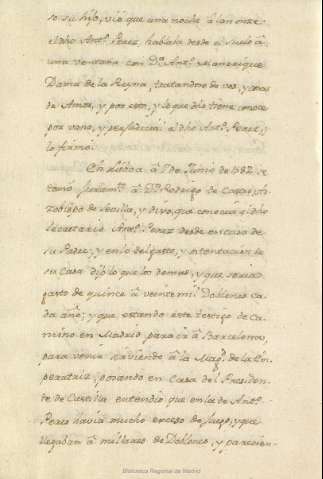 so su hijo, vió que una noche á las onze
el dho Antº. Perez hablaba desde el suelo á
una ventana con Dª. Antª. Manrrique
Dama de la Reyna, tratandose de vos, y cosas
de Amor, y por esto, y lo que dho tiene conoce
por vano, y perjudicial al dho Antº. Perez, y
lo firmó.
En Lisboa á 1º de Junio de 1582. se
tomó juramtº. á Dn. Rodrigo de Castro, Ar-
zobispo de Sevilla, y dijo, que conoce á el dho
Secretario Antº. Perez desde en casa de
su Padre, y en lo del gasto, y ostentacion de
su Casa dijo lo que los demas, y que seria
gasto de quince á veinte mil Doblones ca-
da año; y que estando este testigo de Ca-
mino en Madrid, para ir á Barcelona,
para venir sirviendo á la Magd. de la Em-
peratriz, posando en Casa del Presiden-
te de Castilla entendió que en la de Antº.
Perez havia mucho exceso de juego, y que
llegaban á millares de Doblones, y parecien-
Biblioteca Regional de Madrid